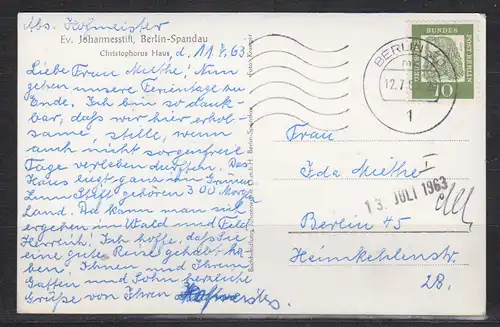 Abs. Hofmeister
Ev. Johannesstift, Berlin-Spandau
Christophorus Haus, d. 11.7.63
Liebe Frau Miethe! Nun
gehen unsere Ferientage zu
Ende. Ich bin so dank-
bar, daß wir hier erhol-
same stille, wenn
auch nicht sorgenfreie
Tage verleben durften. Das
Haus liegt ganz im Grünen
Zum Stift gehören 300 Morgen
Land. Da kann man sich
ergehen im Wald und Feld.
Herrlich! Ich hoffe, daß Sie
eine gute Reise gehabt ha-
ben. Ihnen und Ihrem
Gatten und Sohn herzliche
Grüße von Ihren Hofmeisters
DEUTSCHE
BUNDES
POST BERLIN
10
BERLIN
12.7.6
1
Frau
Ida Miethe
13. JULI 1963
Berlin 45
Heimkehlenstr.
28.